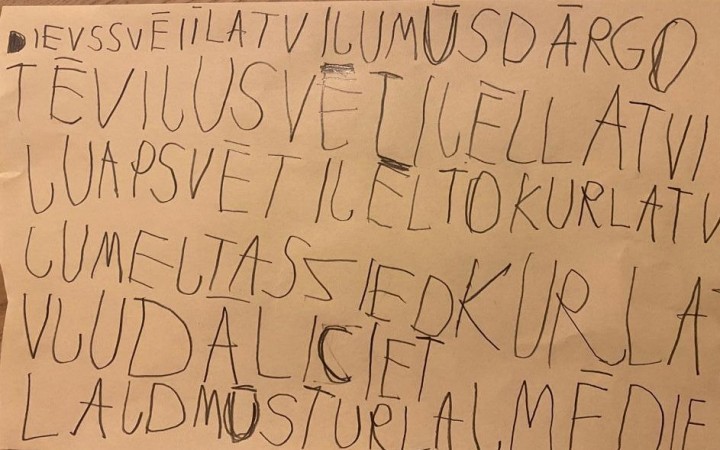 DIEVSSVĒIĪLATVIJUMŪSDĀRGO
TĒVIJUSVĒTIJĒLLATVI
JUAPSVĒTIJĒLTOKURLATV
JUMEJTASZIEDKURLAT
VJUDĀLICIET
LAJDMŪSTURLAJMĒDIE